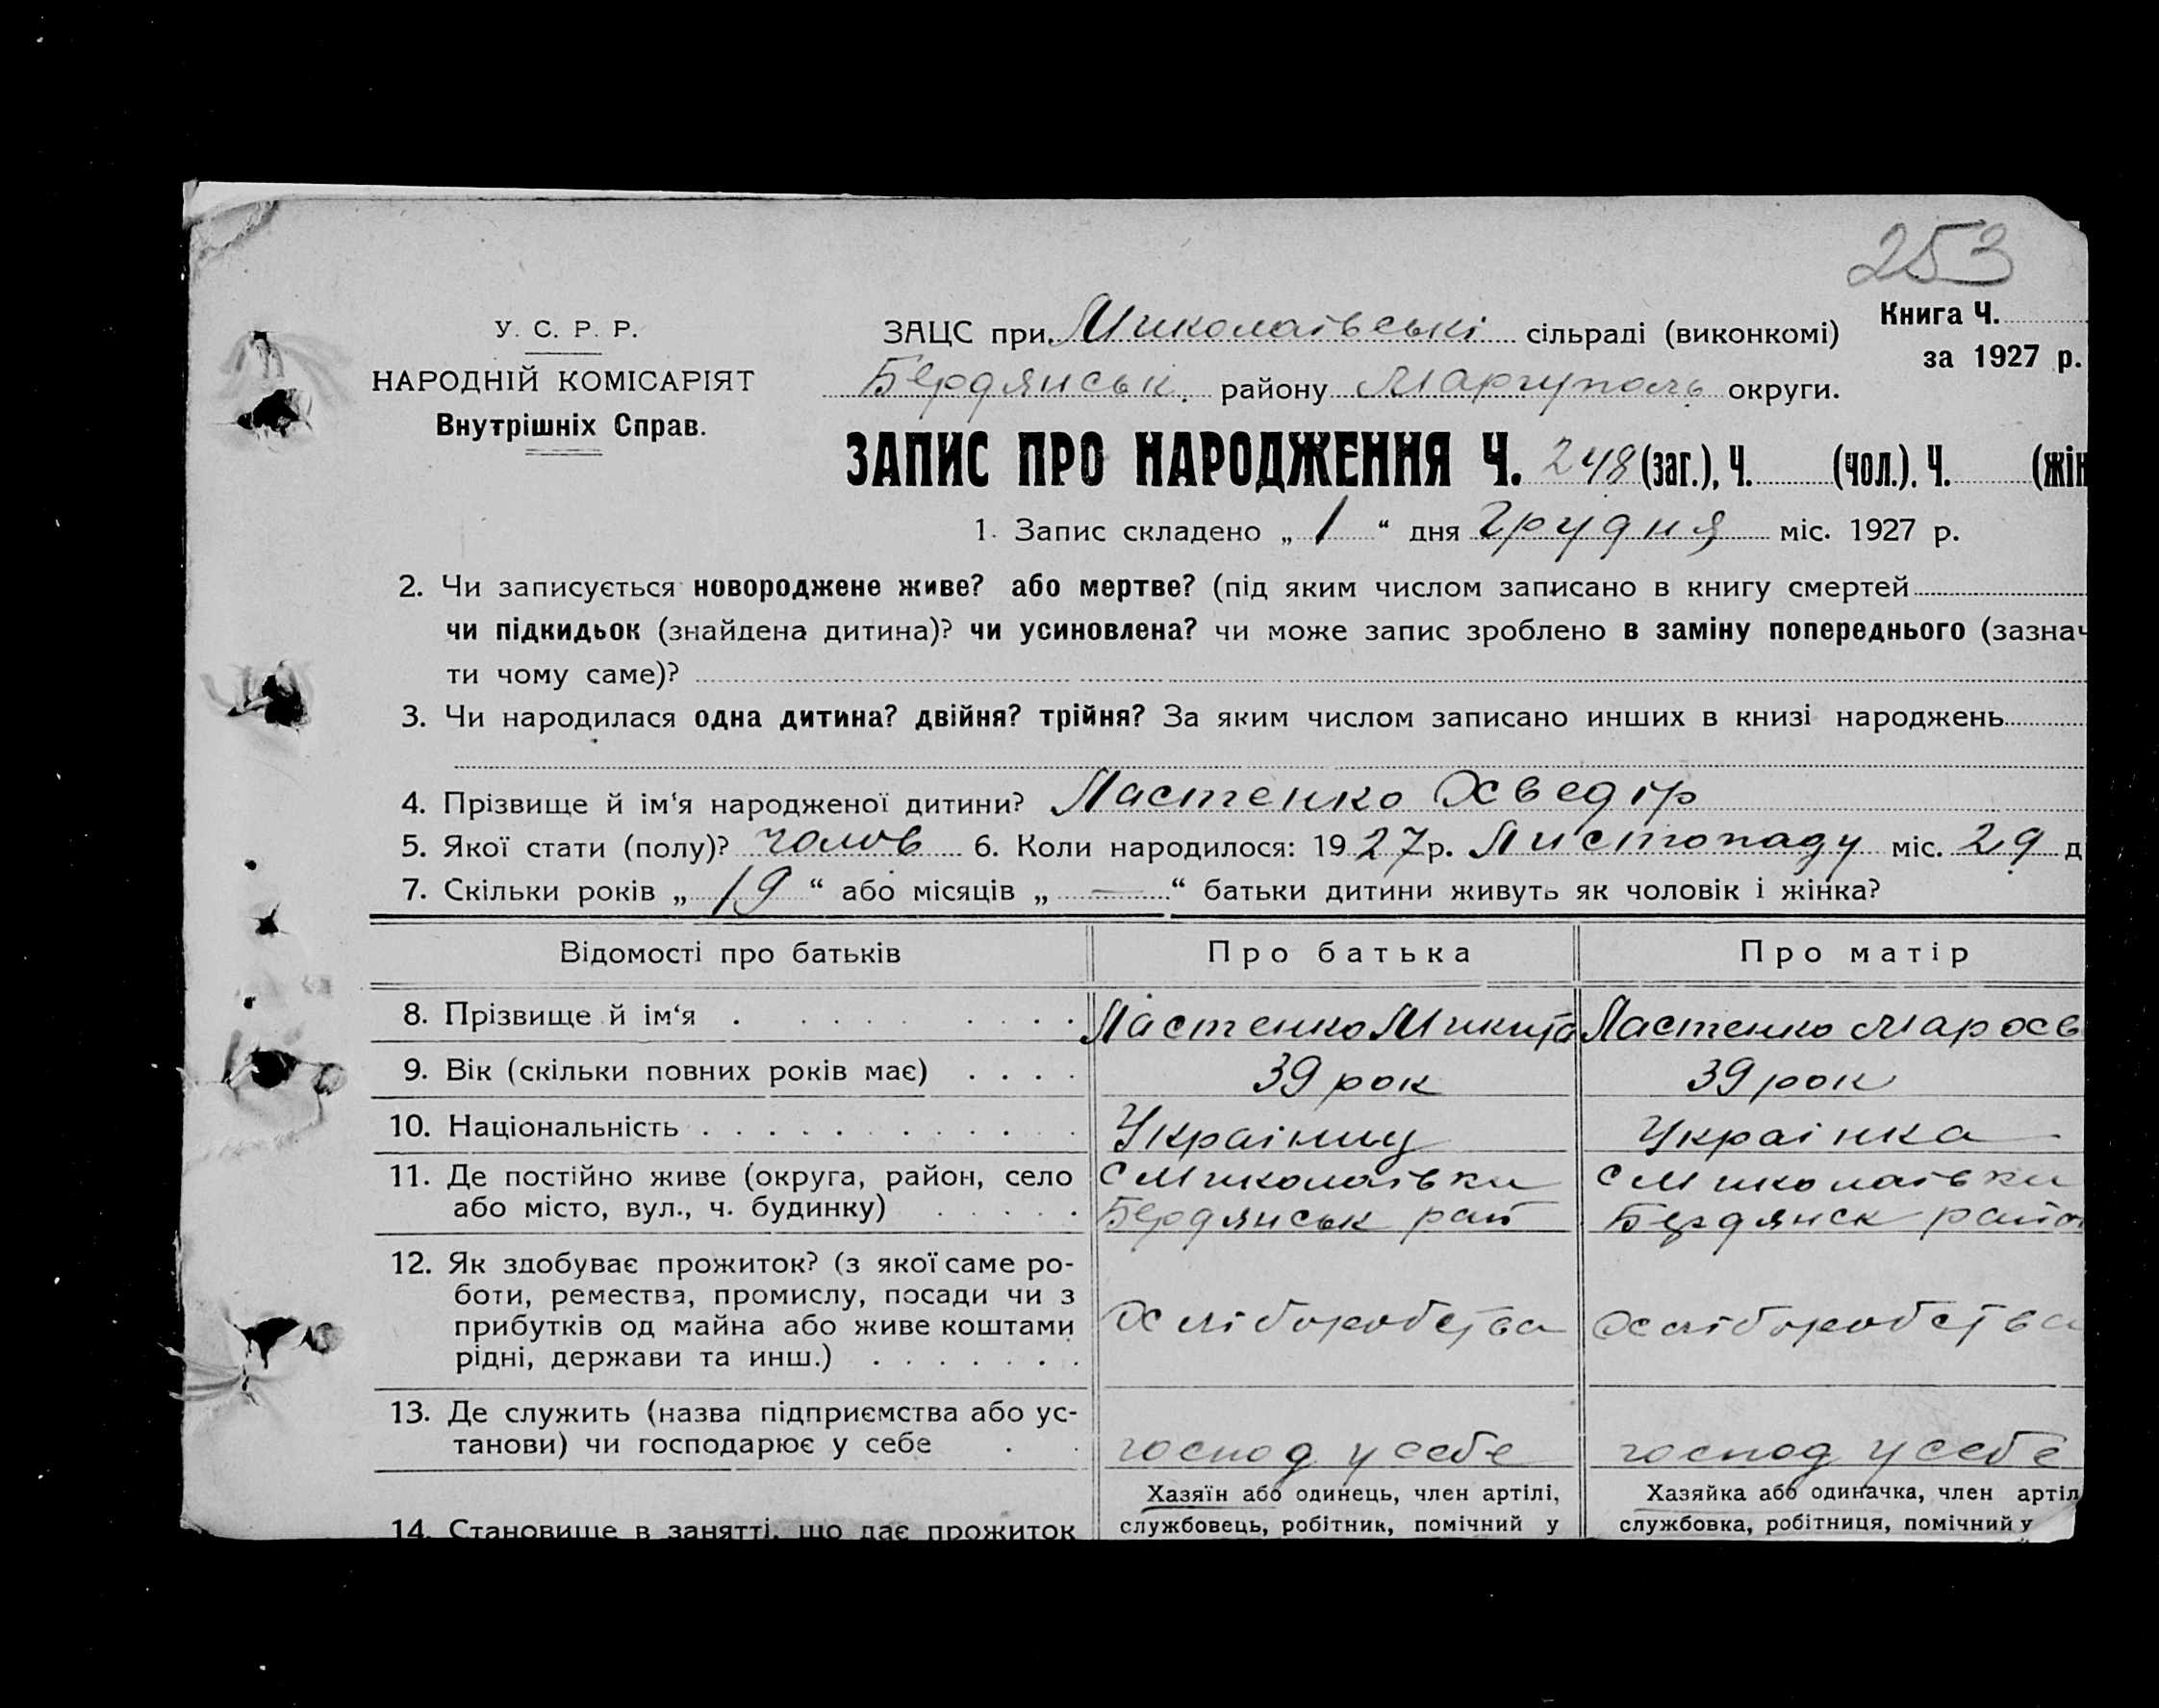 253
У. С. Р. Р.
НАРОДНІЙ КОМІСАРІЯТ
Внутрішніх Справ.
ЗАЦС при Миколаївські сільраді (виконкомі)
Книга Ч.
за 1927 р.
Бердянськ. району Маріуполь округи.
ЗАПИС ПРО НАРОДЖЕННЯ Ч. 248 (заг.), Ч. (чол.). Ч. (жін
1. Запис складено „ 1 “ дня Грудня міс. 1927 р.
2. Чи записується новороджене живе? або мертве? (під яким числом записано в книгу смертей
чи підкидьок (знайдена дитина)? чи усиновлена? чи може запис зроблено в заміну попереднього (зазнач
ти чому саме)?
3. Чи народилася одна дитина? двійня? трійня? За яким числом записано инших в книзі народжень
4. Прізвище й ім‘я народженої дитини? Ластенко Хведір
5. Якої стати (полу)? чолов 6. Коли народилося: 1927 р. Листопаду міс. 29 д
7. Скільки років „ 19 “ або місяців „ — “ батьки дитини живуть як чоловік і жінка?
Відомості про батьків Про батька Про матір
8. Прізвище й ім‘я Ластенко Микита Ластенко
9. Вік (скільки повних років має) 39 рок 39 рок
10. Національність Українцу Українка
11. Де постійно живе (округа, район, село С Миколаївки С Миколаївки
або місто, вул., ч. будинку) Бердянськ рай Бердянск район
12. Як здобуває прожиток? (з якої саме ро-
боти, ремества, промислу, посади чи з
прибутків од майна або живе коштами Хліборобства Хліборобства
рідні, держави та инш.)
13. Де служить (назва підприємства або ус-
танови) чи господарює у себе господ у себе господ у себе
Хазяїн або одинець, член артілі, Хазяйка або одиначка, член артіл
14. Становище в занятті, що дає прожиток службовець, робітник, помічний у службовка, робітниця, помічний у